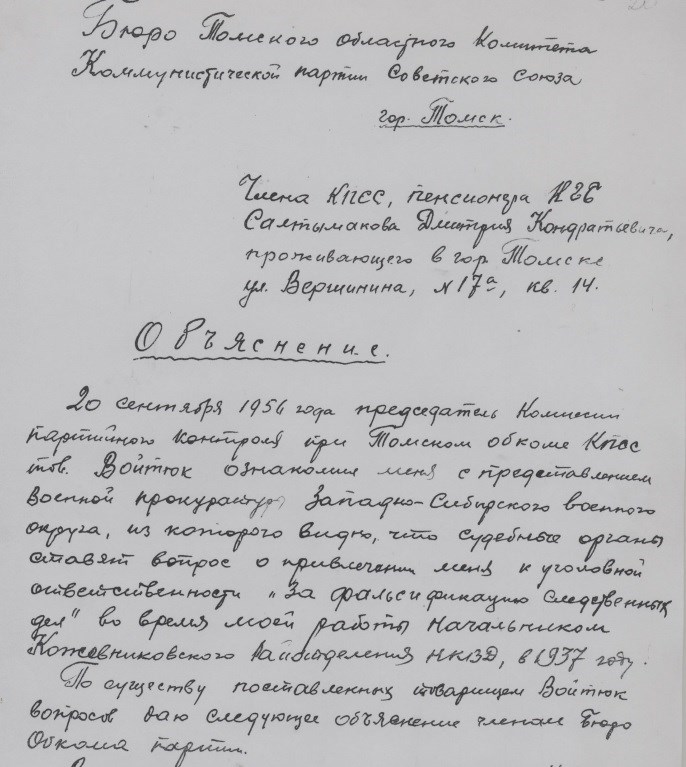 Бюро Томского областного Комитета
Коммунистической партии Советского Союза
гор. Томск.
Члена КПСС, пенсионера КГБ
Салтымакова Дмитрия Кондратьевича,
проживающего в гор. Томске
ул. Вершинина, №17а, кв. 14.
Объяснение.
20 сентября 1956 года председатель Комиссии
партийного контроля при Томском обкоме КПСС
тов. Войтюк ознакомил меня с представлением
Военной прокуратуры Западно-Сибирского военного
округа, из которого видно, что судебные органы
ставят вопрос о привлечении меня к уголовной
ответственности „За фальсификацию следственных
дел" во время моей работы начальником
Кожевниковского Райотделения НКВД, в 1937 году.
По существу поставленных товарищем Войтюк
вопросов даю следующее объяснение членам Бюро
Обкома партии.